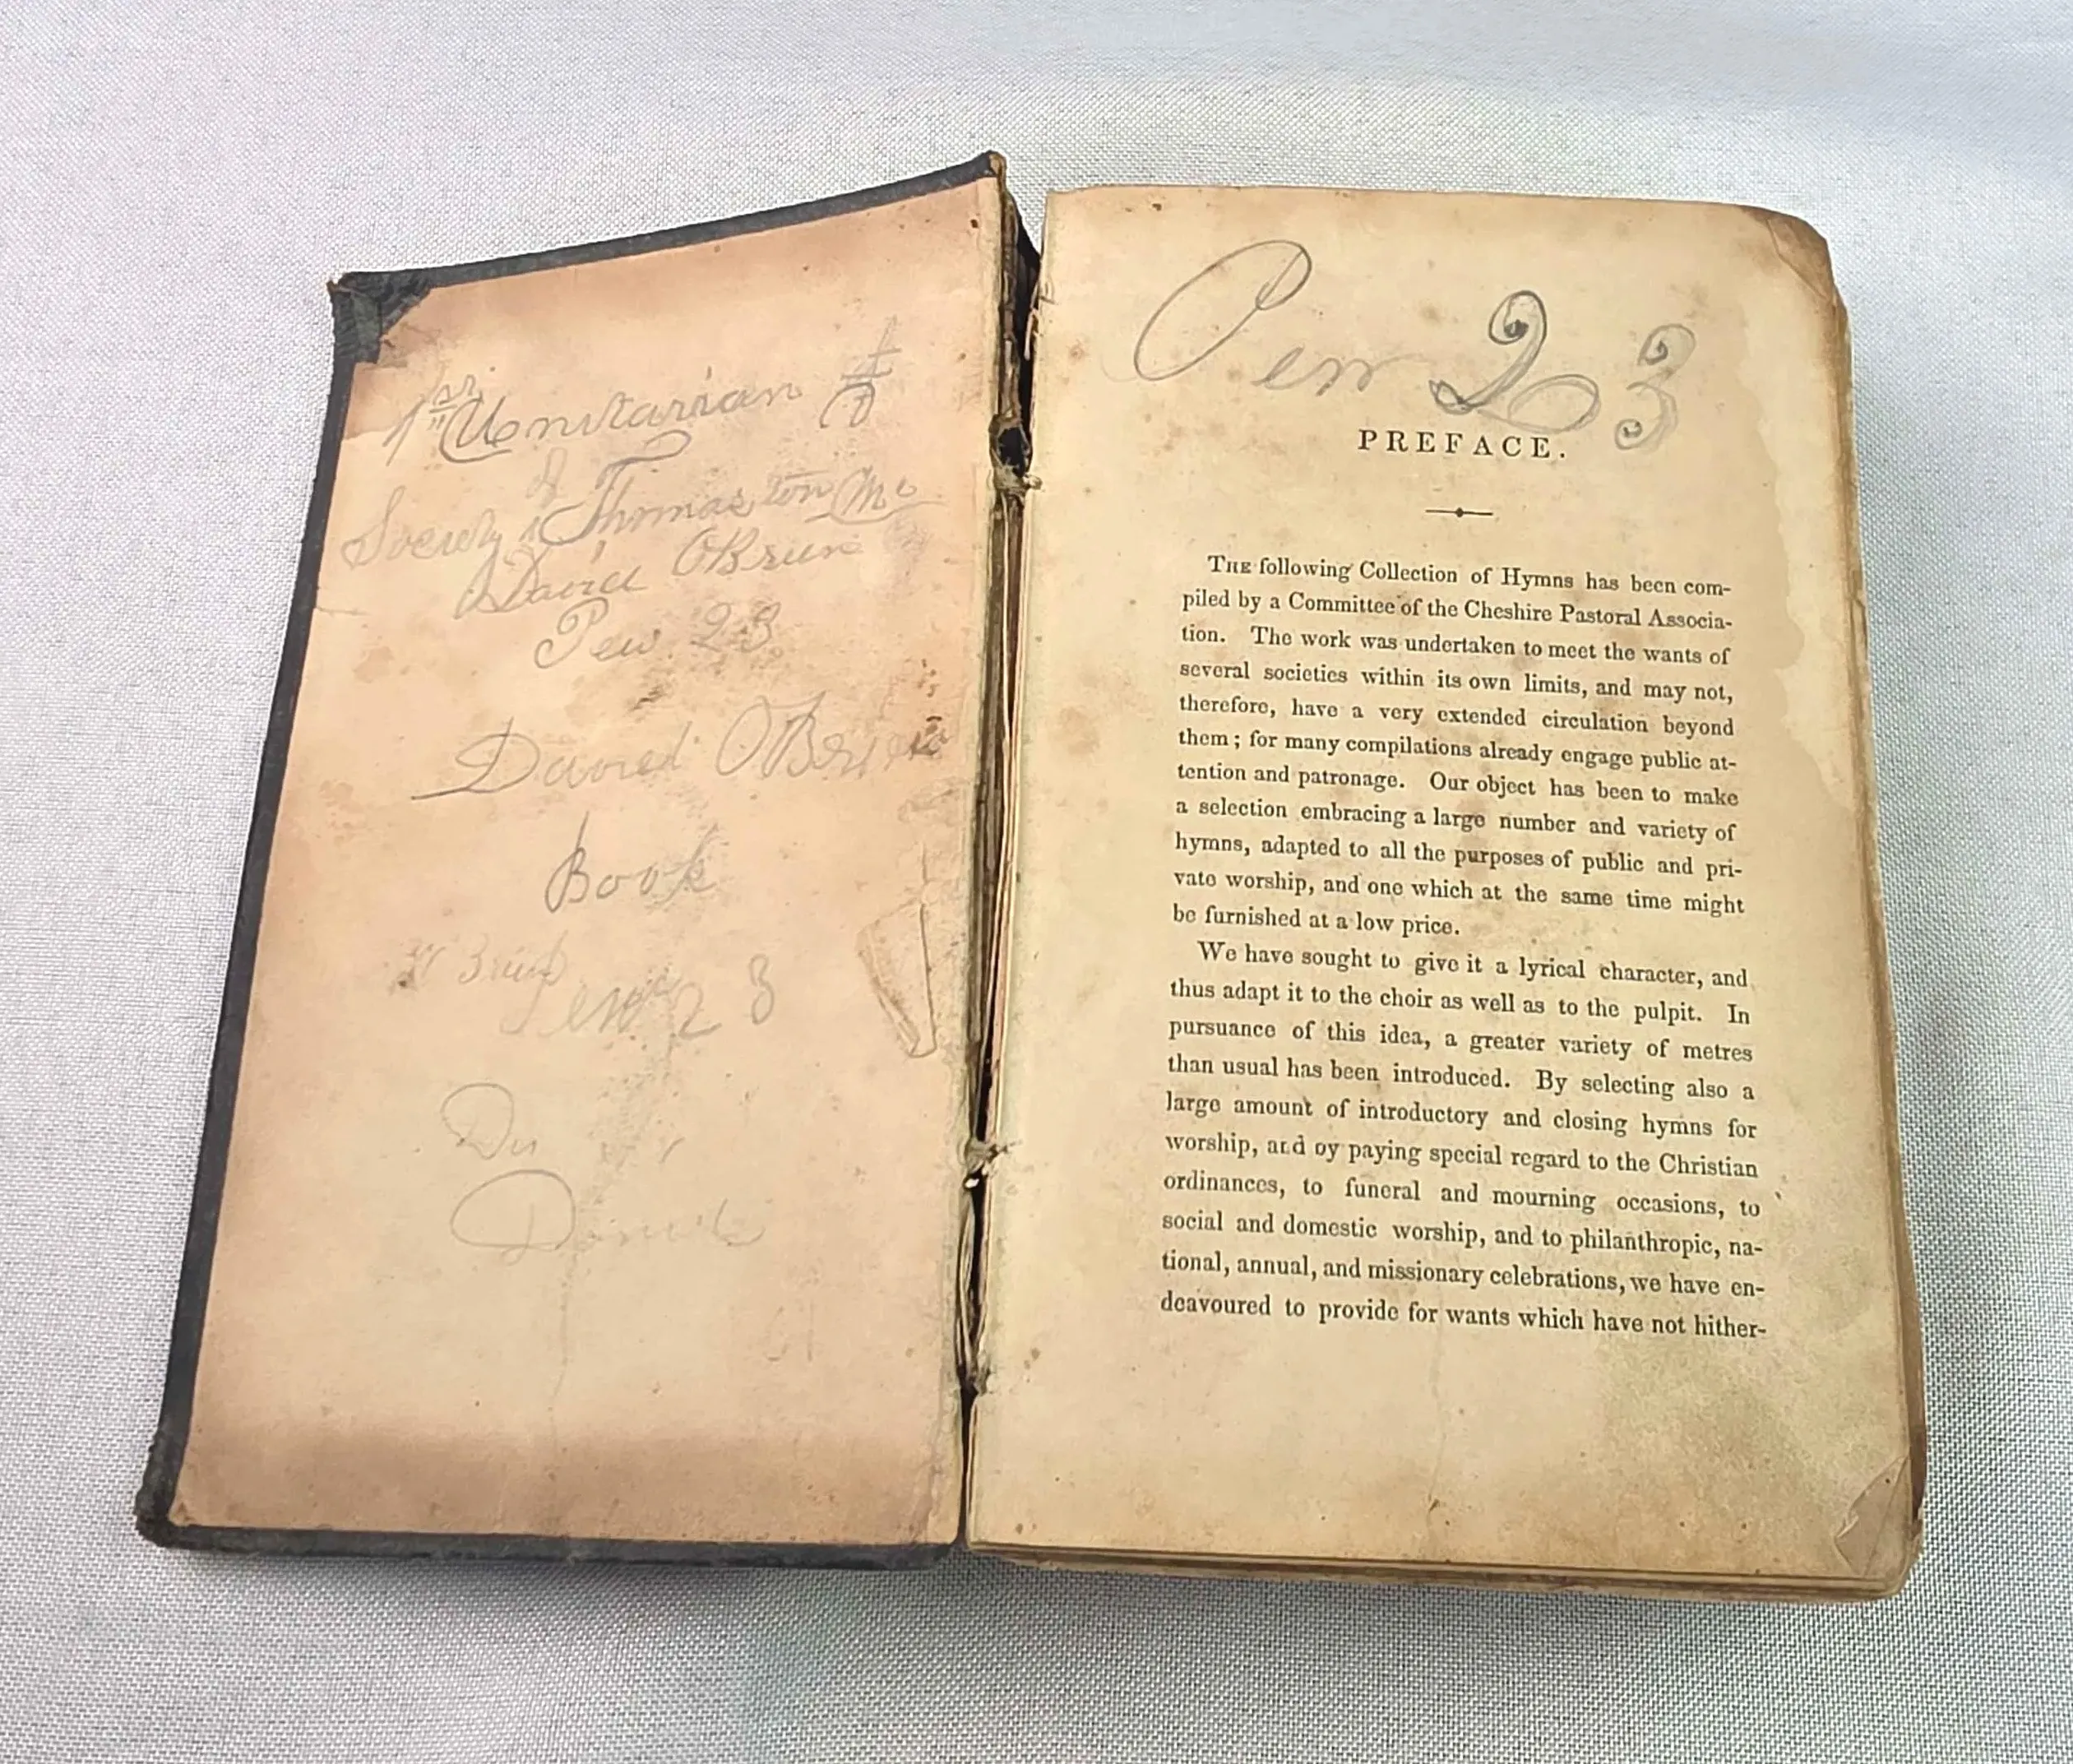 1st Unitarian
Society of Thomaston Me
David OBrien
Pew 23
David OBrien
Book
Pew 23
Pew 23
PREFACE.
THE following Collection of Hymns has been com-
piled by a Committee of the Cheshire Pastoral Associa-
tion. The work was undertaken to meet the wants of
several societies within its own limits, and may not,
therefore, have a very extended circulation beyond
them; for many compilations already engage public at-
tention and patronage. Our object has been to make
a selection embracing a large number and variety of
hymns, adapted to all the purposes of public and pri-
vate worship, and one which at the same time might
be furnished at a low price.
We have sought to give it a lyrical character, and
thus adapt it to the choir as well as to the pulpit. In
pursuance of this idea, a greater variety of metres
than usual has been introduced. By selecting also a
large amount of introductory and closing hymns for
worship, and by paying special regard to the Christian
ordinances, to funeral and mourning occasions, to
social and domestic worship, and to philanthropic, na-
tional, annual, and missionary celebrations, we have en-
deavoured to provide for wants which have not hither-